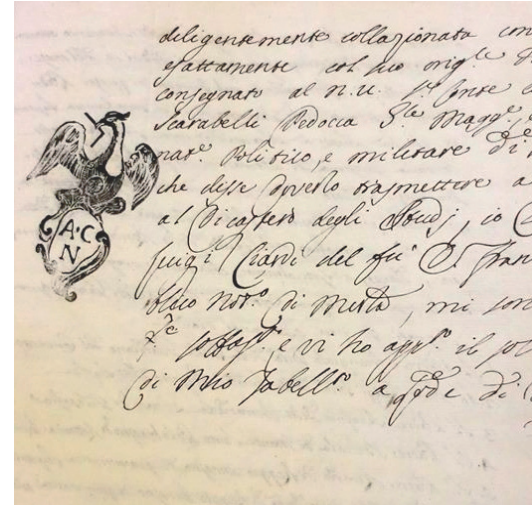 diligentemente collazionata con
esattamente col suo orig.le
consegnato al N.U. Sr. Conte
Scarabelli Pedocca S.te Magg.e
nat.e Politico, e militare di
che disse doverlo trasmettere a
al Dicastero degli Studj, io
Luigi Ciardi del fu D. Fran
blico Not.o di , mi son
e vi ho app.to il
di mio Tabell.to a de di
A·C
N